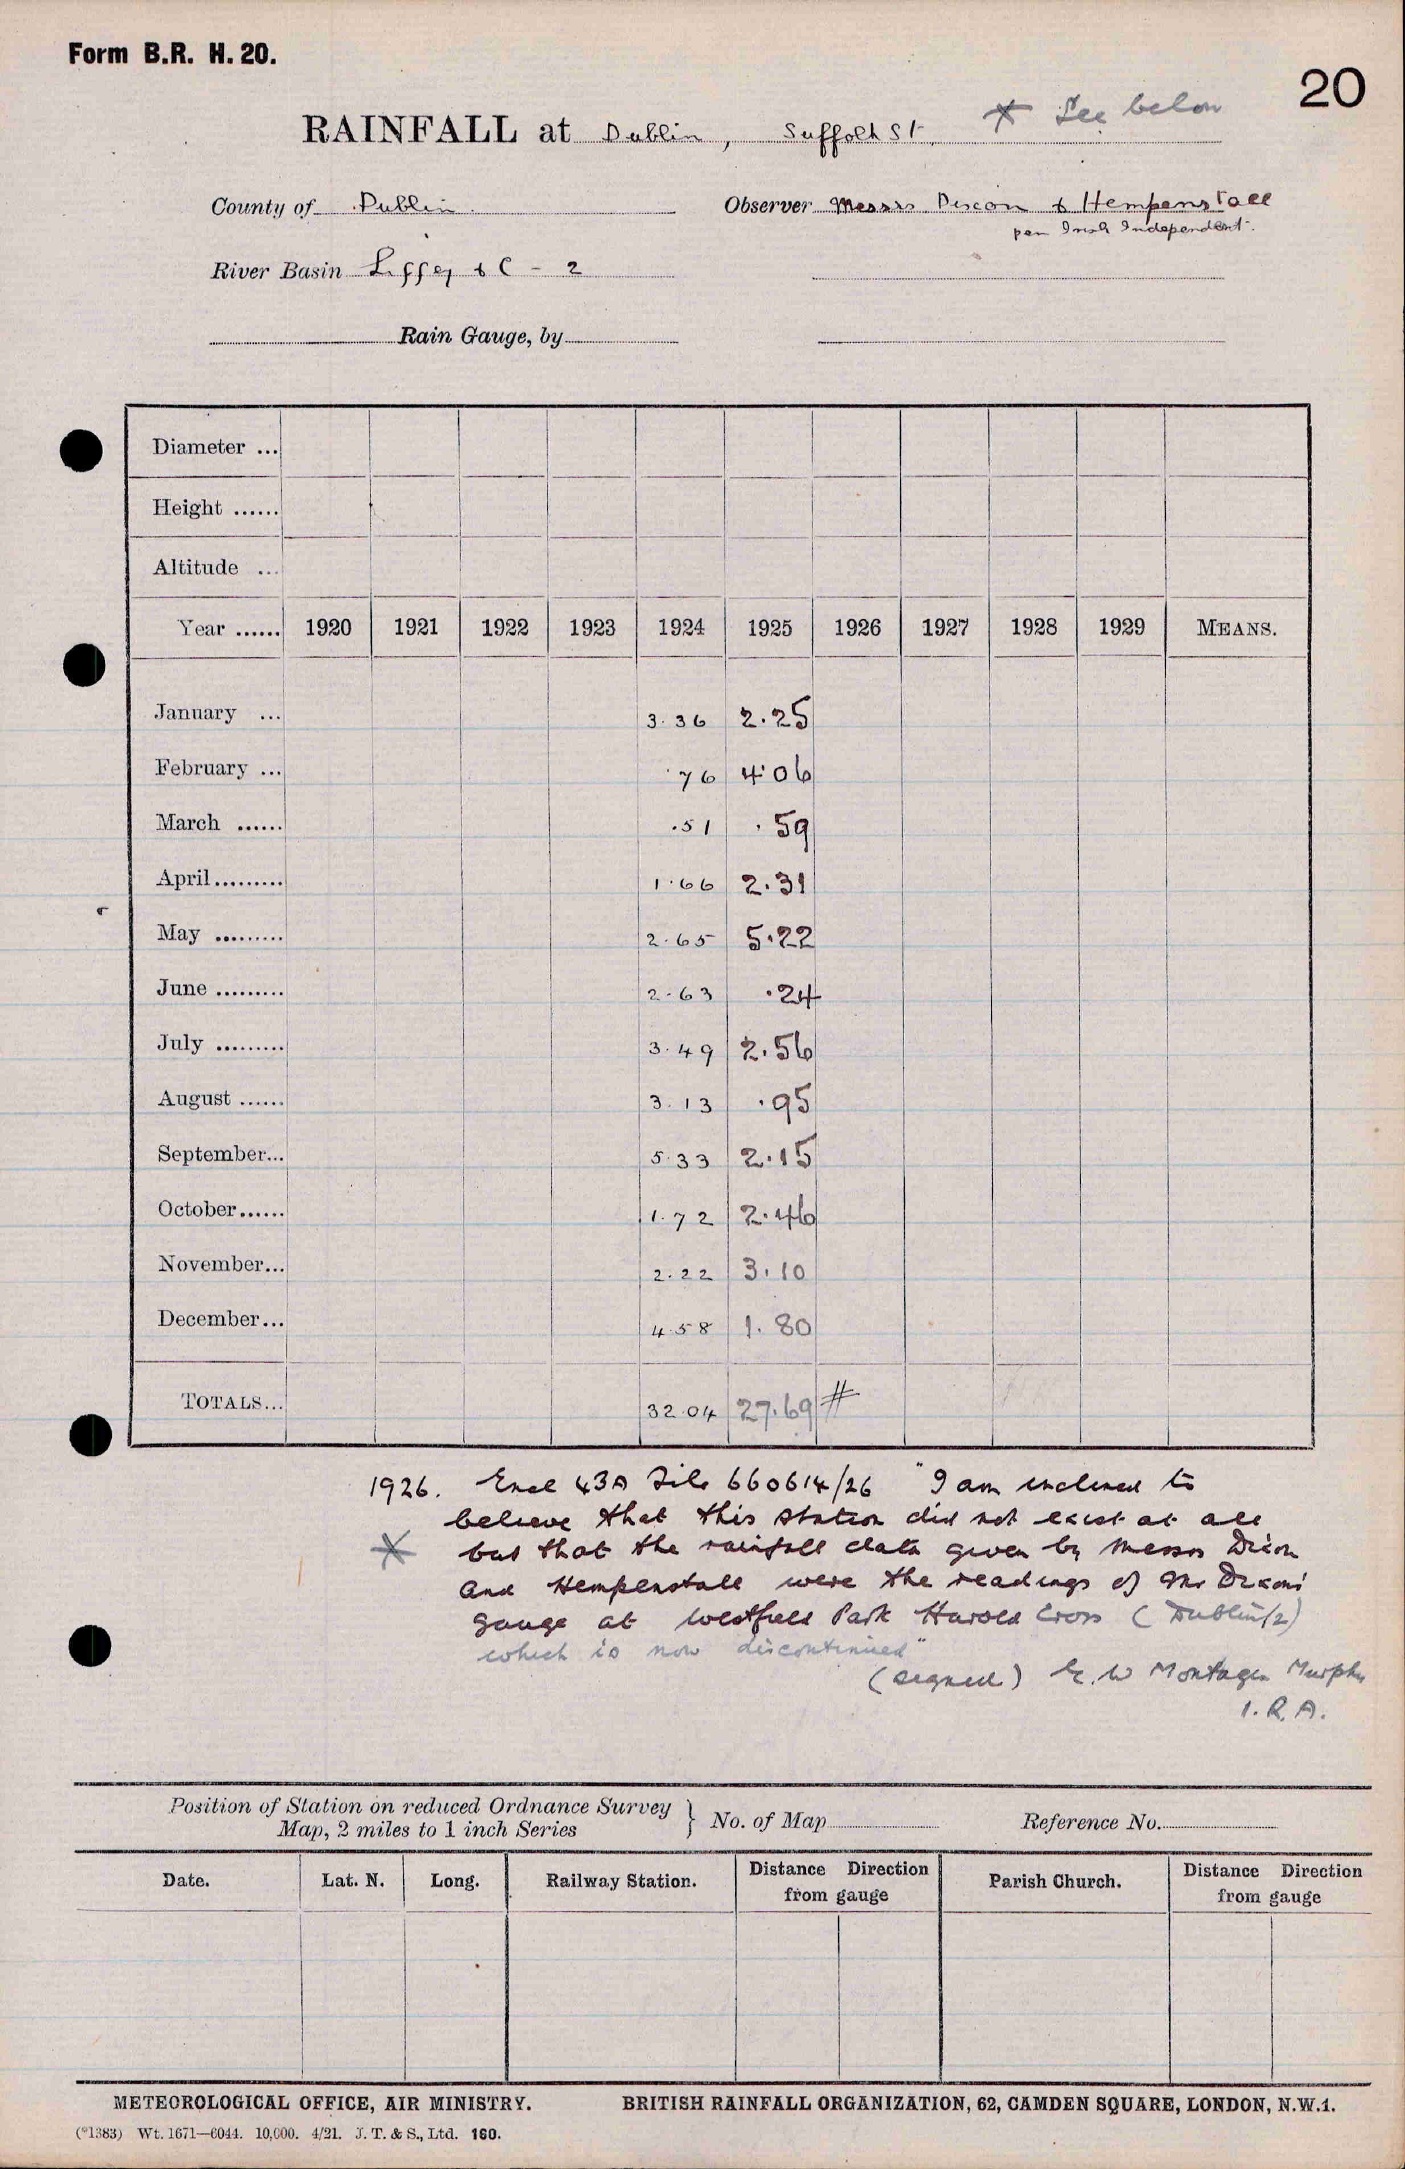 Form B.R. H. 20.
20
RAINFALL at Dublin, Suffolk St. * See below
County of Dublin. Observer Messrs Dixon & Hempenstall
per Irish Independent.
River Basin Liffey & C - 2
Rain Gauge, by
Diameter ...
Height ......
Altitude ...
Year ...... 1920 1921 1922 1923 1924 1925 1926 1927 1928 1929 MEANS.
January ... 3.36 2.25
February ... .76 4.06
March ...... .51 .59
April......... 1.66 2.31
May ......... 2.65 5.22
June ......... 2.63 .24
July ......... 3.49 2.56
August ...... 3.13 .95
September... 5.33 2.15
October...... 1.72 2.46
November... 2.22 3.10
December... 4.58 1.80
TOTALS... 32.04 27.69 #
1926. Encl 43A File 660614/26 "I am inclined to
believe that this station did not exist at all
* but that the rainfall data given by Messrs Dixon
and Hempenstall were the readings of Mr Dixons'
gauge at Westfield Park Harolds Cross (Dublin/2)
which is now discontinued"
(signed) E. W Montagu Murphy
I. R. A.
Position of Station on reduced Ordnance Survey
Map, 2 miles to 1 inch Series } No. of Map Reference No.
Date. Lat. N. Long. Railway Station. Distance Direction from gauge Parish Church. Distance Direction from gauge
METEOROLOGICAL OFFICE, AIR MINISTRY. BRITISH RAINFALL ORGANIZATION, 62, CAMDEN SQUARE, LONDON, N.W.1.
(*1383) Wt. 1671—6044. 10,000. 4/21. J. T. & S., Ltd. 160.